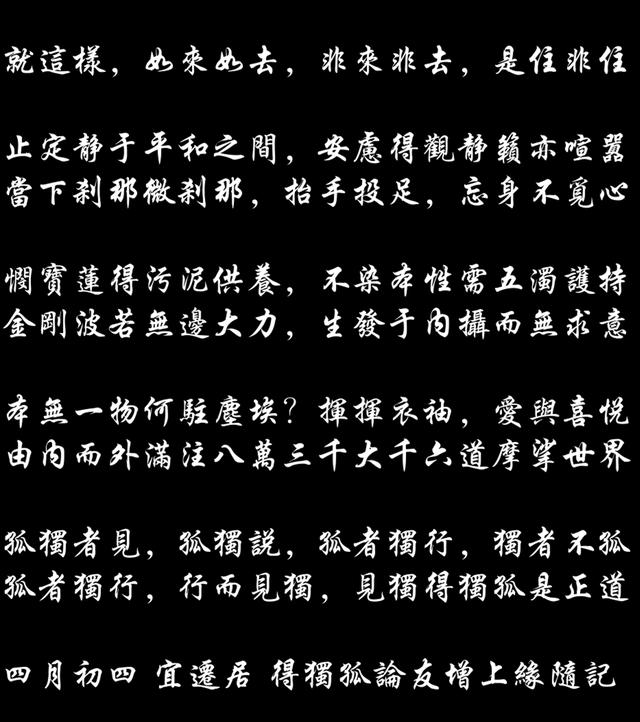 就這樣，如來如去，非來非去，是住非住
止定静于平和之間，安慮得觀静籟亦喧囂
當下刹那微刹那，抬手投足，忘身不覓心
憫寶蓮得污泥供養，不染本性需五濁護持
金剛波若無邊大力，生發于内攝而無求意
本無一物何駐塵埃？揮揮衣袖，愛與喜悅
由内而外滿注八萬三千大千六道摩挲世界
孤獨者見，孤獨説，孤者獨行，獨者不孤
孤者獨行，行而見獨，見獨得獨孤是正道
四月初四 宜遷居 得獨孤論友增上緣隨記